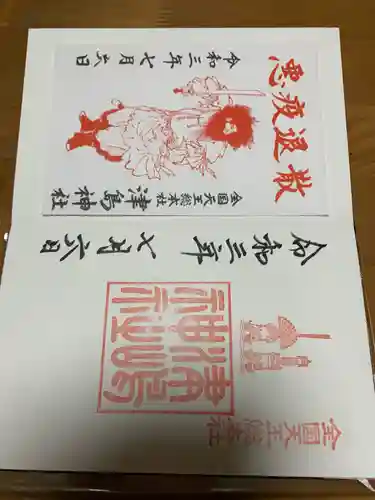 悪疫退散
全国天王総本社
津島神社
令和三年七月六日
全国天王総本社
令和三年七月六日